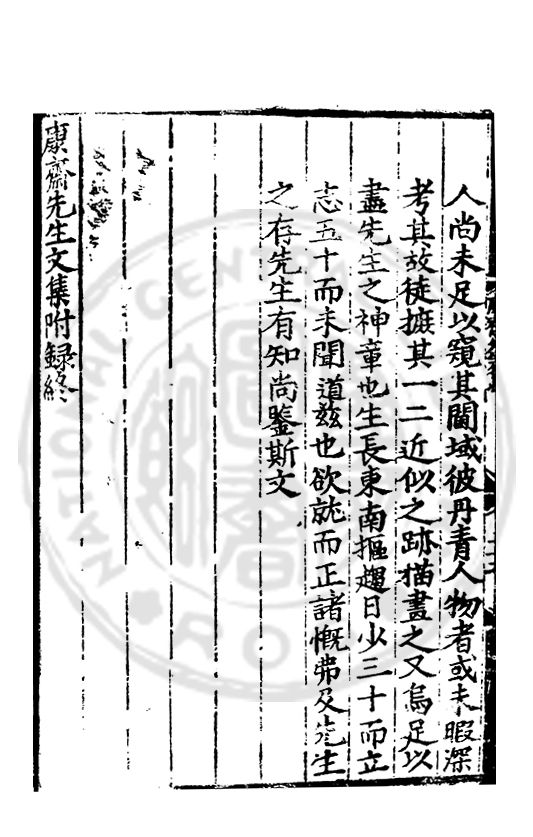 人尚未足以窺其閫域彼丹青人物者或未暇深
考其故徒摭其一二近似之跡描畫之又烏足以
盡先生之神章也生長東南摳趨日少三十而立
志五十而未聞道茲也欲就而正諸慨弗及先生
之存先生有知尚鑒斯文
康齋先生文集附録終